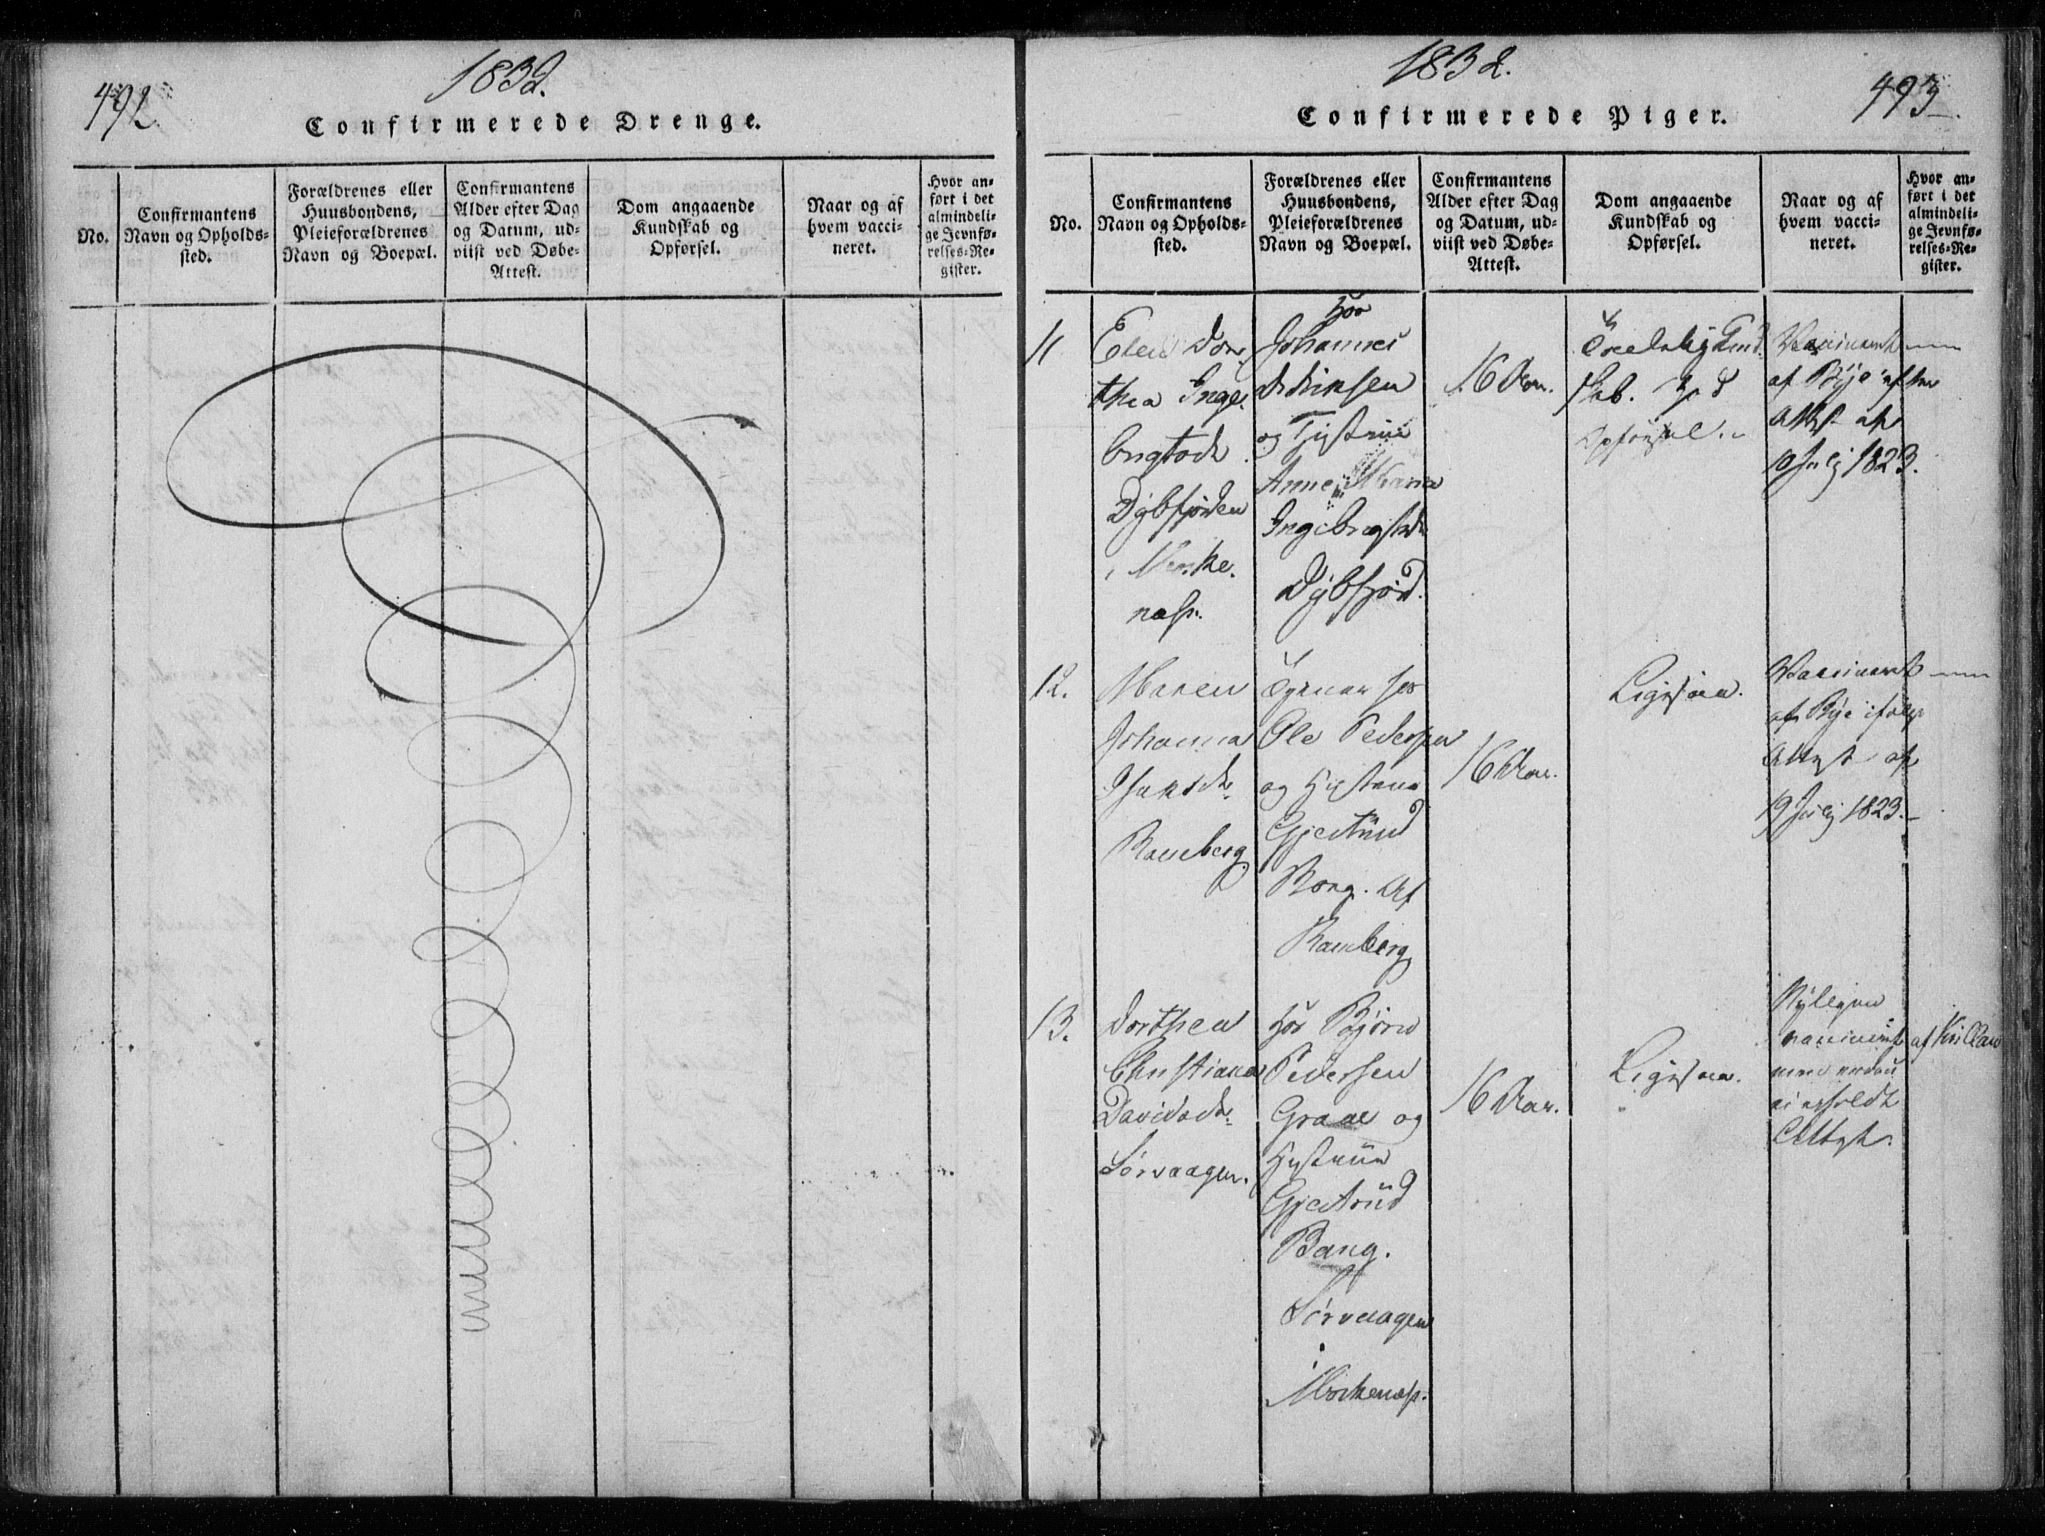 492
1832.
Confirmerede Drenge.
No.
Confirmantens
Navn og Opholds-
sted.
Forældrenes eller
Huusbondens,
Pleieforældrenes
Navn og Boepæl.
Confirmantens
Alder efter Dag
og Datum, ud-
viist ved Døbe-
Attest.
Dom angaaende
Kundskab og
Opførsel.
Naar og af
hvem vacci-
neret.
Hvor an-
ført i det
almindeli-
ge Jevnfø-
relses-Re-
gister.
1832.
493
Confirmerede Piger.
No.
Confirmantens
Navn og Opholds-
sted.
Forældrenes eller
Huusbondens,
Pleieforældrenes
Navn og Boepæl.
Confirmantens
Alder efter Dag
og Datum, ud-
viist ved Døbe-
Attest.
Dom angaaende
Kundskab og
Opførsel.
Naar og af
hvem vacci-
neret.
Hvor an-
ført i det
almindeli-
ge Jevnfø-
relses-Re-
gister.
11
Elen Dor
thea Inge
brigtsdr.
Dybfjorden
Moske
næss.
Hos
Johannes
Didriksen
og Hustrue
Anne Maria
Ingebrigtsdr
Dybfjord.
16 Aar.
Kund
skab.
Opførsel.
Vaccineret
af Bye efter
Attest af
19 July 1823.
12.
Maren
Johanna
Isaksdr.
Ramberg
hos
Ole Pedersen
og Hustrue
Gjertrud
Ramberg
16 Aar.
Ligesaa.
Vaccineret
af Bye ifølge
Attest af
19 July 1823.
13.
Dorthea
Christiana
Davidsdr.
Sørvaagen.
Hos Bjørn
Pedersen
Graae og
Hustrue
Gjertrud
Bang.
Sørvaagen
i
Moskenæss.
16 Aar.
Ligesaa.
Nyligen
vaccineret af
men endnu
ei erholdt
Attest.